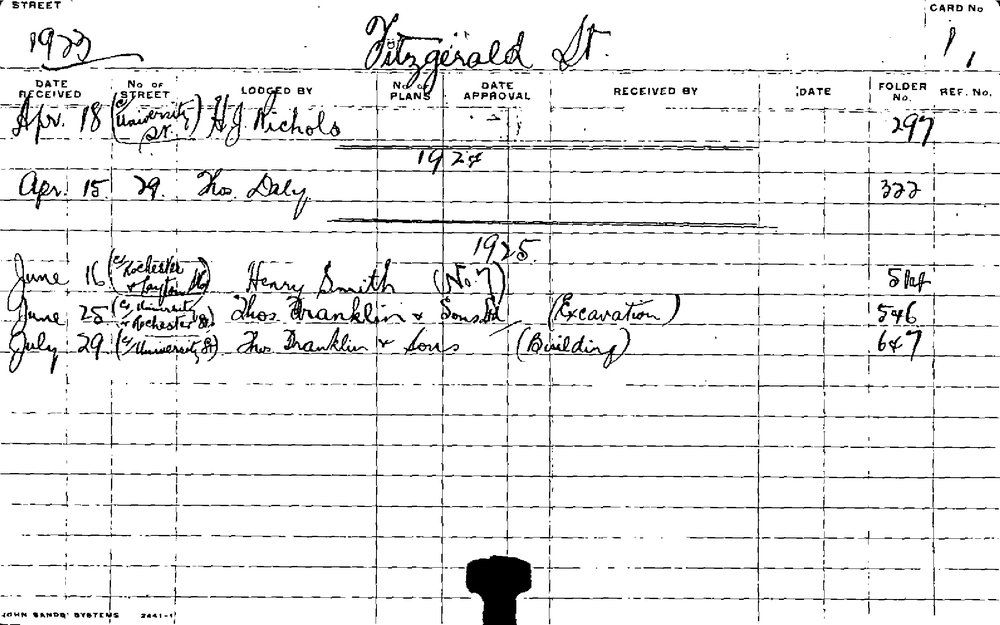 STREET CARD No
1923 Fitzgerald St. 1,
DATE RECEIVED No OF STREET LODGED BY No OF PLANS DATE APPROVAL RECEIVED BY DATE FOLDER No. REF. No.
Apr. 18 (c/ University St.) H.J. Nichols 297
1924
Apr. 15 29. Thos. Daly 322
1925.
June 16 (c/ Rochester & Layton St) Henry Smith (No. 7)
June 25 (c/ University & Rochester St.) Thos Franklin & Sons Ld (Excavation) 546
July 29 (c/ University St) Thos Franklin & Sons (Building) 647
JOHN SANDS' SYSTEMS 2441-1